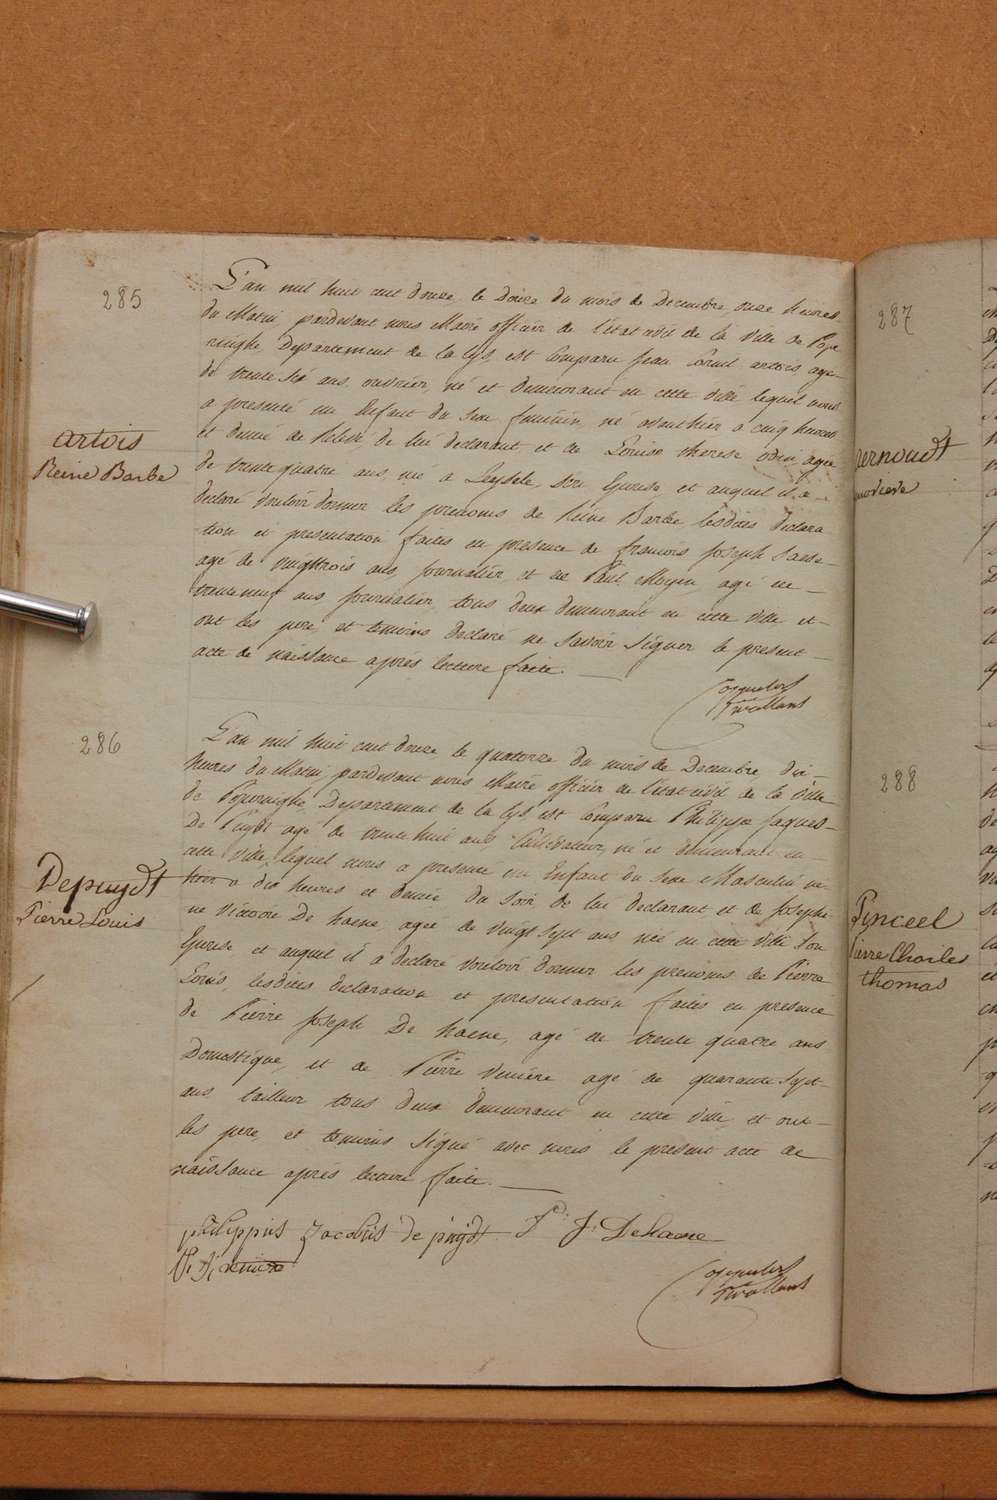 285
artois
Reine Barbe
L'an mil huit cent douze, le douze du mois de Decembre, onze heures
du Matin pardevant nous Maire officier de l'état civil de la Ville de Pope
ringhe, Departement de la Lys, est Comparu Jean Cornil artois agé
de trente six ans, ouvrier, né et demeurant en cette ville lequel nous
a presenté un Enfant du sexe feminin, né avanthier à cinq heures
et demie de relevée, de lui declarant et de Louise therese agée
de trente quatre ans, née a Leysele, son Epouse et auquel il a
declaré vouloir donner les prenoms de Reine Barbe lesdites declara
tion et presentation faites en presence de francois Joseph
agé de vingttrois ans journalier et de Paul agé de
trenteneuf ans, journalier, tous deux demeurant en cette ville et
ont les pere, et temoins declaré ne savoir signer le present
acte de naissance après lecture faite.
286
Depuydt
Pierre Louis
L'an mil huit cent douze, le quatorze du mois de Decembre, dix
heures du Matin, pardevant nous Maire officier de l'état civil de la Ville
de Poperinghe, Departement de la Lys, est Comparu Philippe Jaques
De Puydt agé de trente huit ans Cultivateur, né et demeurant en
cette Ville, lequel nous a presenté un Enfant du sexe Masculin né
hier a dix heures et demie du soir de lui declarant et de Josephi
ne Victoire De haene, agée de vingt sept ans née en cette Ville son
Epouse, et auquel il a declaré vouloir donner les prenoms de Pierre
Louis, lesdites declaration et presentation faites en presence
de Pierre Joseph De haene, agé de trente quatre ans
Domestique, et de Pierre agé de quarante sept
ans tailleur tous deux demeurant en cette Ville, et ont
les pere, et temoins signé avec nous le present acte de
naissance après lecture faite.
philippus Jacobus de puydt P. J. Dehaene
287
288
Pinceel
Pierre Charles
thomas